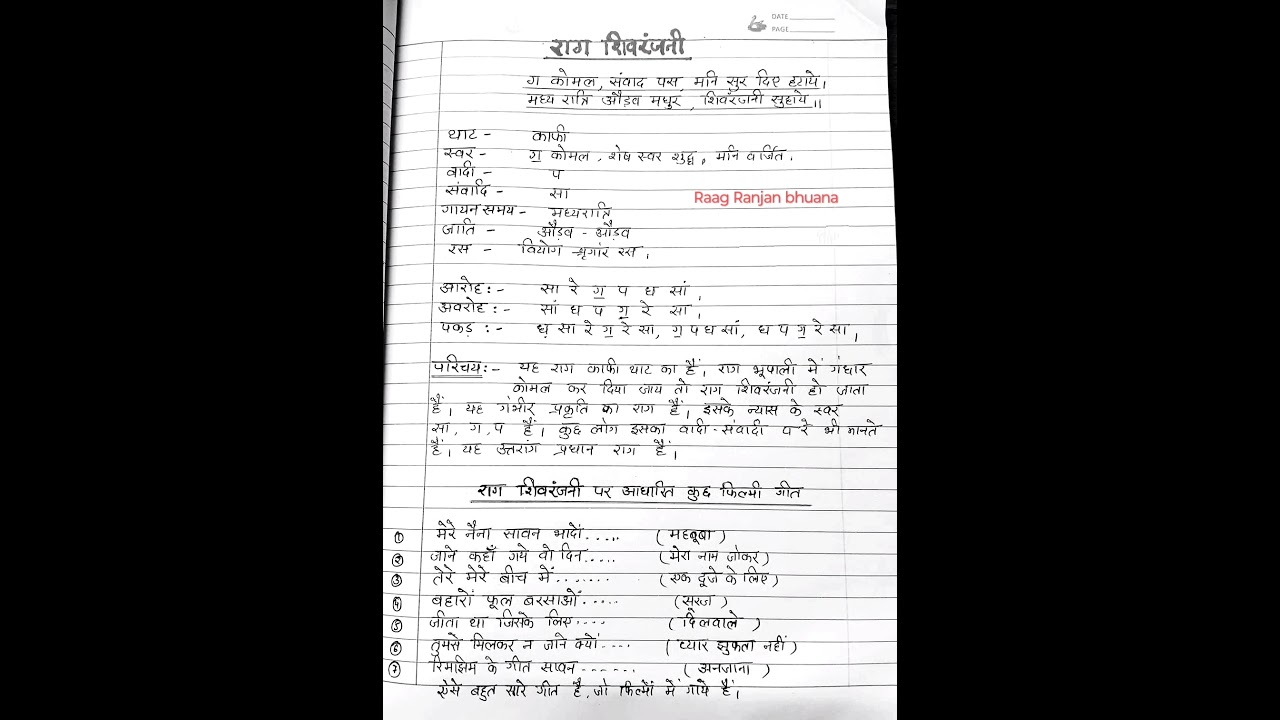 DATE
PAGE
राग शिवरंजनी
ग कोमल, संवाद पस, मनि सुर दिए हटाये।
मध्य रात्रि औडव मधुर, शिवरंजनी सुहाये।।
थाट - काफी
स्वर - ग॒ कोमल, शेष स्वर शुद्ध, मनि वर्जित,
वादी - प
संवादि - सा
Raag Ranjan bhuana
गायन समय - मध्यरात्रि
जाति - औडव - औड़व
रस - वियोग श्रृगांर रस,
आरोह:- सा रे ग॒ प ध सां,
अवरोह:- सां ध प ग॒ रे सा,
पकड़ :- ध़ सा रे ग॒ रे सा, ग॒ प ध सां, ध प ग॒ रे सा,
परिचय:- यह राग काफी थाट का हैं, राग भूपाली में गंधार
कोमल कर दिया जाय तो राग शिवरंजनी हो जाता
हैं। यह गंभीर प्रकृति का राग हैं, इसके न्यास के स्वर
सा, ग, प हैं। कुछ लोग इसका वादी-संवादी प रे भी मानते
हैं। यह उत्तरांग प्रधान राग हैं।
राग शिवरंजनी पर आधारित कुछ फिल्मी गीत
① मेरे नैना सावन भादों..... (महबूबा)
② जाने कहाँ गये वो दिन..... (मेरा नाम जोकर)
③ तेरे मेरे बीच में....... (एक दूजे के लिए)
④ बहारों फूल बरसाओं..... (सूरज)
⑤ जीता था जिसके लिए.... (दिलवाले)
⑥ तुमसे मिलकर न जाने क्यों.... (प्यार झुकता नहीं)
⑦ रिमझिम के गीत सावन...... (अनजाना)
ऐसे बहुत सारे गीत है, जो फिल्मों में गाये हैं।